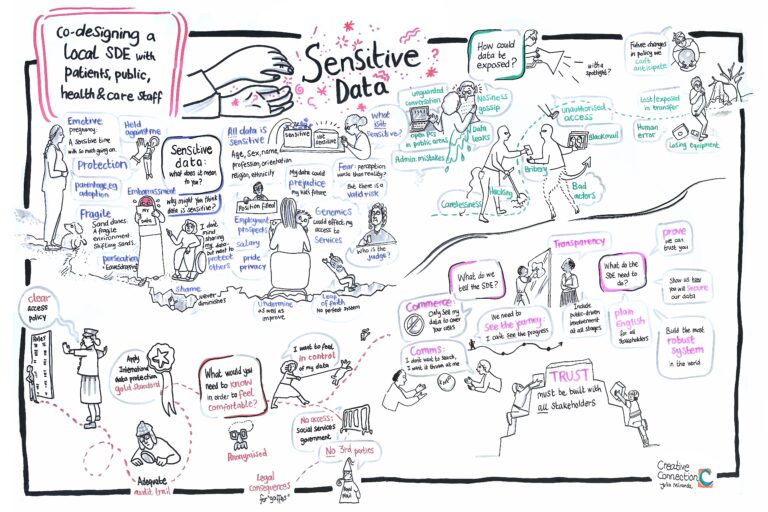 Co-designing a
local SDE with
patients, public,
health & care staff
Sensitive
Data
Emotive
pregnancy:
A sensitive time
with so much going on.
Held
against me
Protection
parentage, eg
adoption
Embarrassment
MY
Data
Fragile
Sand dunes.
A fragile
environment.
Shifting sands.
Perception
Eavesdropping
Shame
never
diminishes
Sensitive
data:
what does it mean
to you?
Why might you think
data is sensitive?
I don't
mind
sharing
my data,
but want to
protect
others
All data is
sensitive
Age, sex, name,
profession, orientation
religion, ethnicity
Sensitive
Not
sensitive
What
isn't
sensitive?
Position filled
Employment
prospects
salary
pride
privacy
My data could
prejudice
my kid's future
Fear: perception
worse than reality?
But there is a
valid risk
Genomics
Could effect my
access to
services
Who is the
judge?
Undermine
as well as
improve
Leap
of faith
No perfect system
How could
data be
exposed?
with a
spotlight?
Future changes
in policy we
can't
anticipate
unguarded
conversation
Nosiness
gossip
open PCs
in public areas
Data
leaks
Admin. mistakes
Unauthorised
access
Blackmail
Lost/exposed
in transfer
Human
error
Losing equipment
Carelessness
Hacking
Bribery
Bad
actors
clear
access
policy
Rules
Apply
International
data protection
gold standard
Adequate
audit trail
What would you
need to know
in order to feel
comfortable?
Anonymised
I want to feel
in control
of my data
No access:
Social Services
government
No 3rd parties
Legal
consequences
for "gaffes"
What do we
tell the SDE?
Transparency
Commerce:
Only sell my
data to cover
your costs
We need to
See the journey
I can't see the progress
Include
public-driven
involvement
at all stages
Comms:
I don't want to search,
I want it thrown at me
What do the
SDE need to
do?
prove
we can
trust you
Show us how
you will secure
our data
plain
English
for all
stakeholders
Build the most
robust
system
in the world
TRUST
must be built with
all stakeholders
Creative
Connection